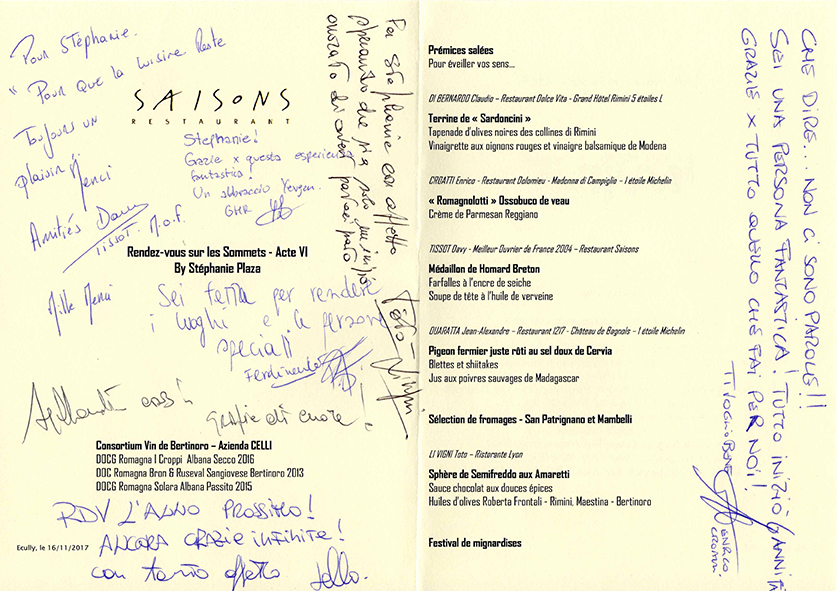 Pour Stéphanie.
" Pour que la Cuisine Reste
Toujours un
plaisir !
Merci
Amitiés
TISSOT M.O.F.
SAISONS
RESTAURANT
Stephanie!
Grazie x questa esperienza
fantastica!
Un abbraccio
GHR
Per Stephanie con affetto
sperando che sia solo un inizio
onorato di aver partecipato
Toto
Rendez-vous sur les Sommets - Acte VI
By Stéphanie Plaza
Mille Merci
Sei fatta per rendere
i luoghi e le persone
speciali
Ferdinando
così !
grazie di cuore !
Consortium Vin de Bertinoro – Azienda CELLI
DOCG Romagna I Croppi Albana Secco 2016
DOC Romagna Bron & Ruseval Sangiovese Bertinoro 2013
DOCG Romagna Solara Albana Passito 2015
RDV L'ANNO PROSSIMO!
ANCORA GRAZIE INFINITE!
con tanto affetto
Ecully, le 16/11/2017
Prémices salées
Pour éveiller vos sens...
DI BERNARDO Claudio – Restaurant Dolce Vita - Grand Hôtel Rimini 5 étoiles L
Terrine de « Sardoncini »
Tapenade d'olives noires des collines di Rimini
Vinaigrette aux oignons rouges et vinaigre balsamique de Modena
CROATTI Enrico - Restaurant Dolomieu - Madonna di Campiglio – 1 étoile Michelin
« Romagnolotti » Ossobuco de veau
Crème de Parmesan Reggiano
TISSOT Davy - Meilleur Ouvrier de France 2004 – Restaurant Saisons
Médaillon de Homard Breton
Farfalles à l'encre de seiche
Soupe de tête à l'huile de verveine
OUARATTA Jean-Alexandre – Restaurant 1217 - Château de Bagnols – 1 étoile Michelin
Pigeon fermier juste rôti au sel doux de Cervia
Blettes et shiitakes
Jus aux poivres sauvages de Madagascar
Sélection de fromages - San Patrignano et Mambelli
LI VIGNI Toto – Ristorante Lyon
Sphère de Semifreddo aux Amaretti
Sauce chocolat aux douces épices
Huiles d'olives Roberta Frontali - Rimini, Maestina - Bertinoro
Festival de mignardises
CHE DIRE... NON CI SONO PAROLE!!
SEI UNA PERSONA FANTASTICA! TUTTO INIZIÒ 6 ANNI FA
GRAZIE X TUTTO QUELLO CHE FAI PER NOI!
TI VOGLIO BENE
ENRICO
CROATTI